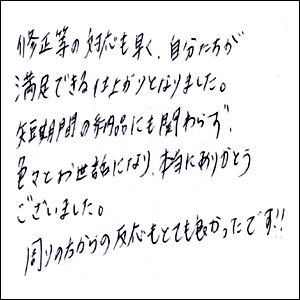 修正等の対応も早く、自分たちが
満足できる仕上がりとなりました。
短期間の納品にも関わらず、
色々とお世話になり、本当にありがとう
ございました。
周りの方からの反応もとても良かったです!!